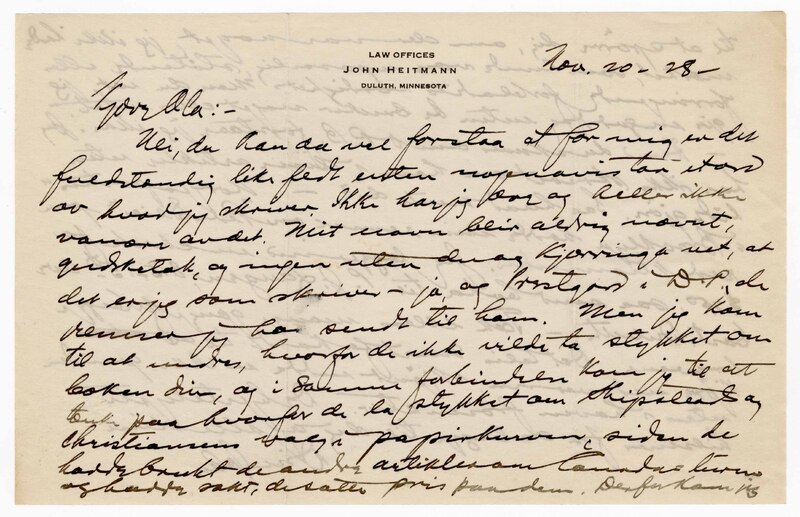 LAW OFFICES
JOHN HEITMANN
DULUTH, MINNESOTA
Nov. 20 - 28 -
Kjære Ola: -
Nei, du kan da vel forstaa at for mig er det
fuldstændig like fedt enten nogen avis tar et ord
av hvad jeg skriver. Ikke har jeg ære og heller ikke
vanære av det. Mit navn blir aldrig nævnt,
gudskelak, og ingen uten du og Kjærringa vet, at
det er jeg som skriver - ja, og Prestgard i D-P., de
jeg har sendt til ham. Men jeg kom
til at undres, hvorfor de ikke vilde ta stykket om
boken din, og i samme forbindelse kom jeg til at
tenke paa hvorfor de la stykket om Shipstead og
Christiansens valg i papirkurven, siden de
hadde brukt de andre artikler om
og hadde sagt, de satte pris paa dem. Derfor kom jeg